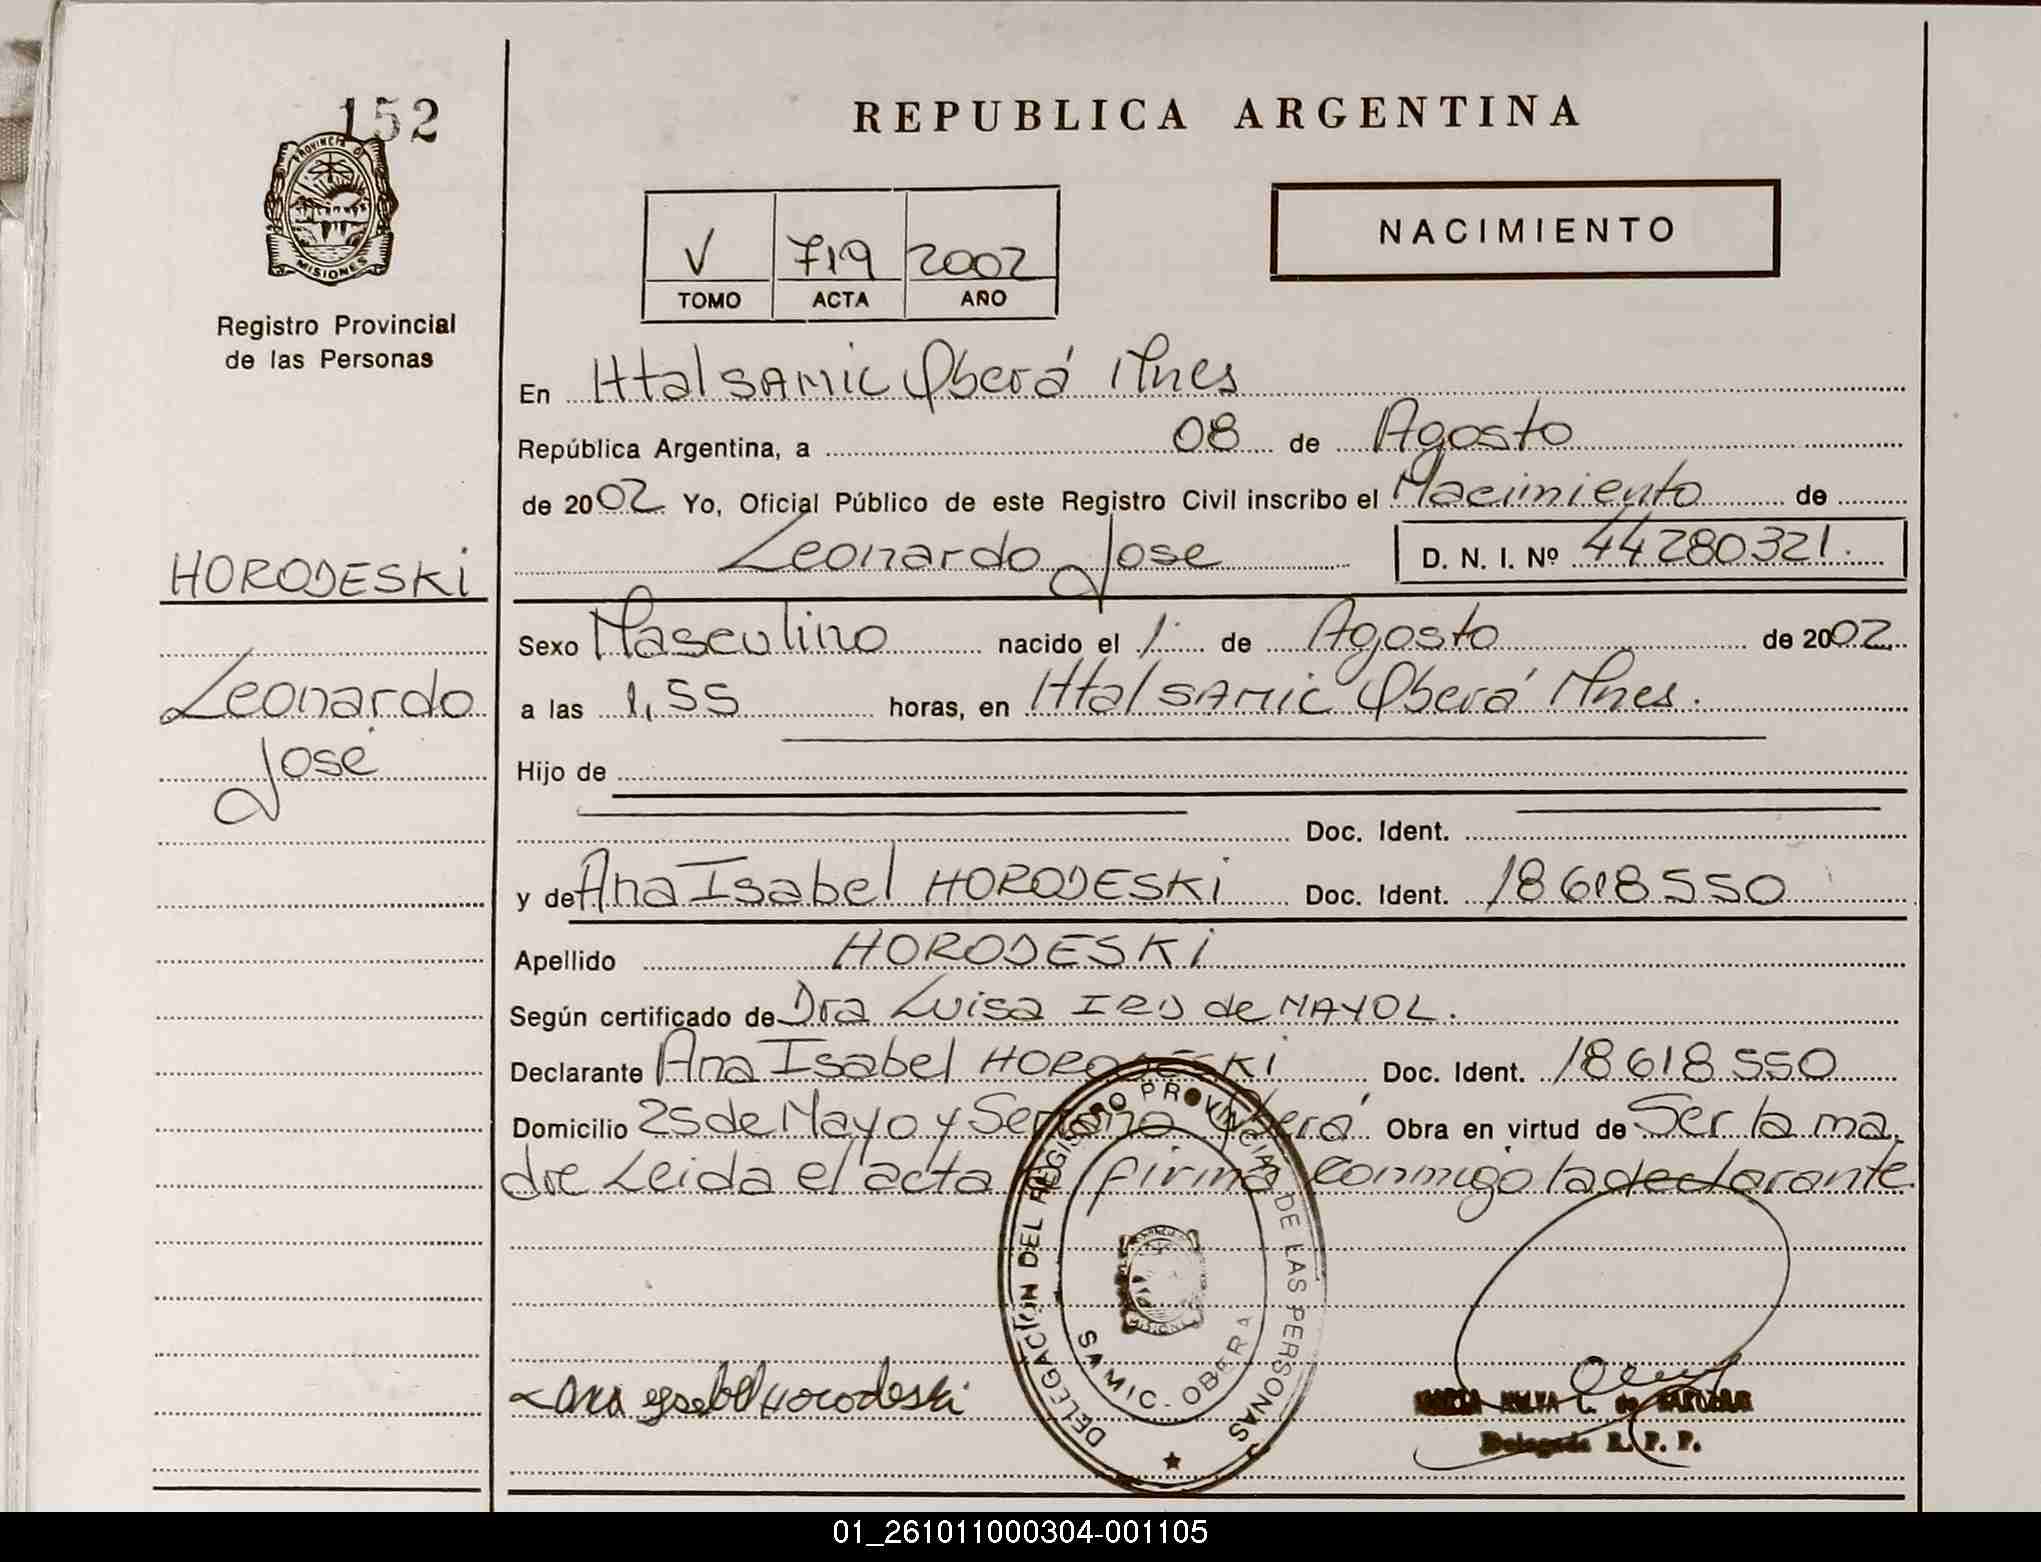 152
REPUBLICA ARGENTINA
PROVINCIA D
MISIONES
Registro Provincial
de las Personas
V 719 2002
TOMO ACTA AÑO
NACIMIENTO
En Htal SAMIC Oberá Mnes
República Argentina, a 08 de Agosto
de 2002 Yo, Oficial Público de este Registro Civil inscribo el Nacimiento de
Leonardo Jose D. N. I. Nº 44280321.
HORODESKI
Leonardo
José
Sexo Masculino nacido el 1· de Agosto de 2002
a las 1,55 horas, en Htal SAMIC Oberá Mnes.
Hijo de
Doc. Ident.
y de Ana Isabel HORODESKI Doc. Ident. 18618550
Apellido HORODESKI
Según certificado de Dra Luisa de MAYOL.
Declarante Ana Isabel HORODESKI Doc. Ident. 18618550
Domicilio 25 de Mayo y Oberá Obra en virtud de Ser la ma
dre Leida el acta firma conmigo la declarante.
DELEGACIÓN DEL REGISTRO PROVINCIAL DE LAS PERSONAS
SAMIC. OBERA
MISIONES
Ana Ysabel Horodeski
Delegada R. P. P.
01_261011000304-001105